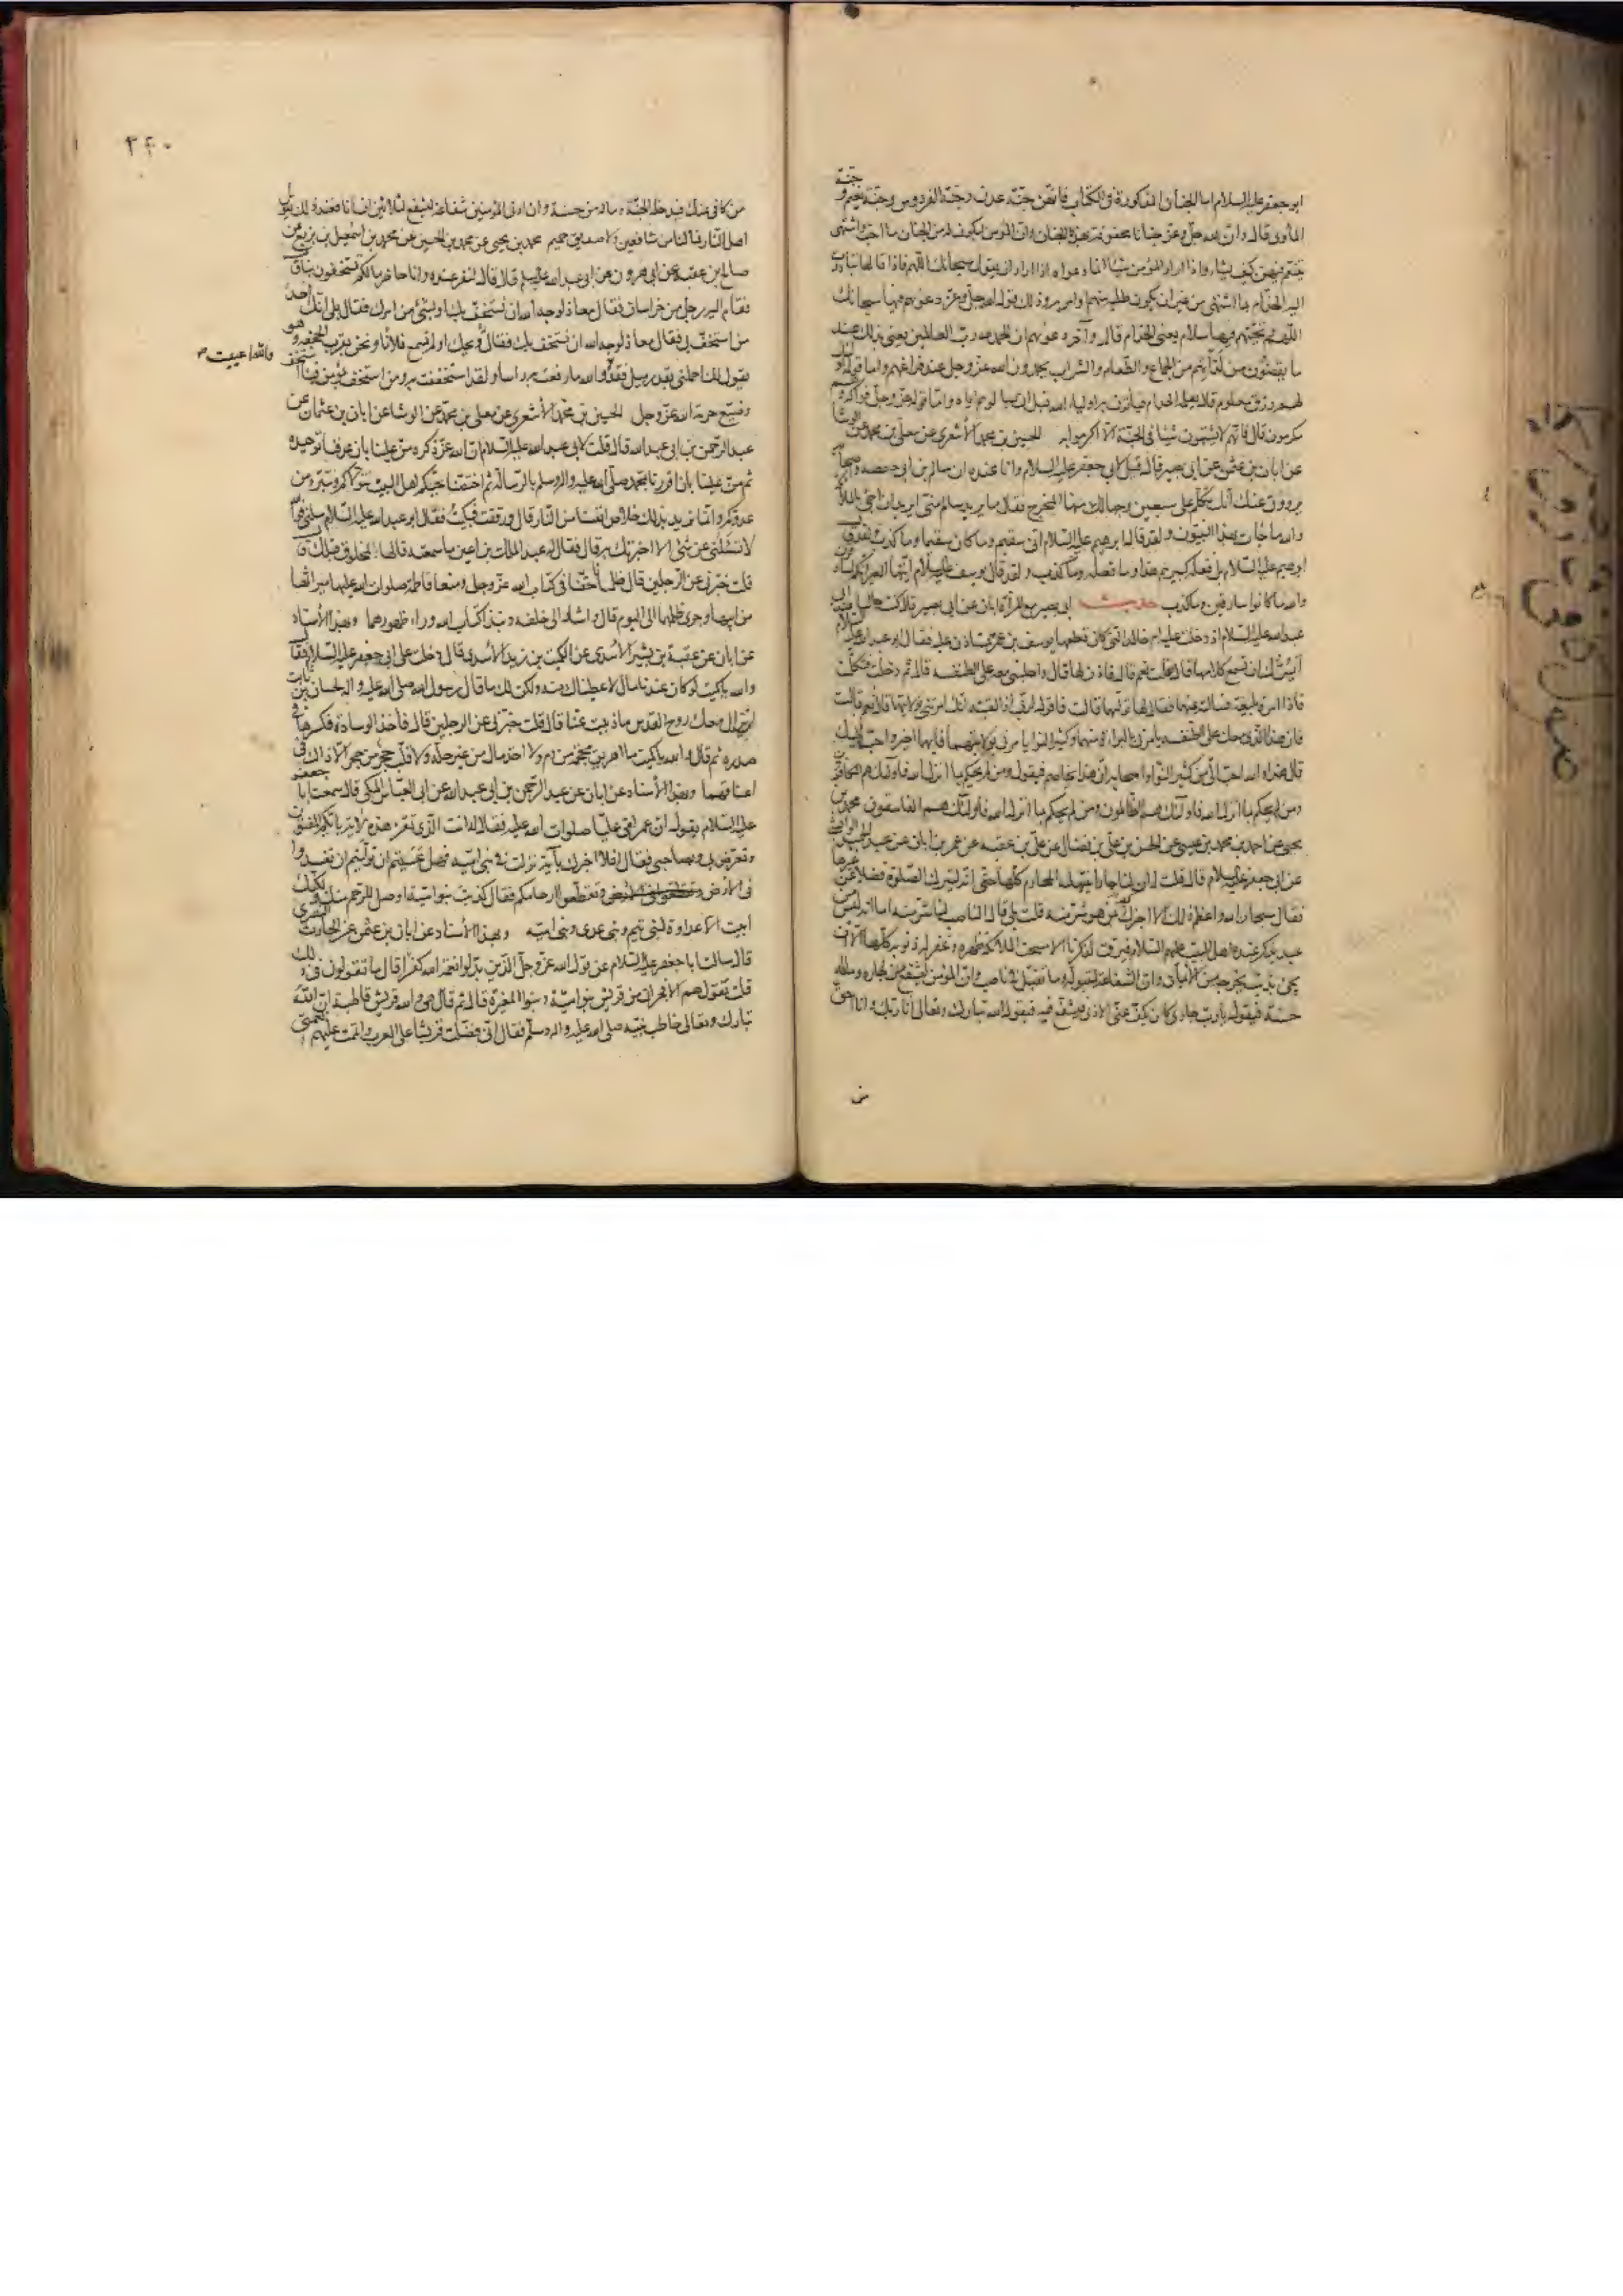 ابو جعفر عليه السلام اما الجنان المذكورة في الكتاب فانهن جنة عدن وجنة الفردوس وجنة نعيم وجنة
المأوى قال وان لله جل وعز جنانا محفوفة بهذه الجنان وان المؤمن ليكون له من الجنان ما احب واشتهى
يتنعم فيهن كيف يشاء واذا اراد المؤمن شيئا انما دعواه اذا اراد ان يقول سبحانك اللهم فاذا قالها تبادرت
اليه الخدام بما اشتهى من غير ان يكون طلبه منهم او امر به وذلك قول الله جل وعز دعويهم فيها سبحانك
اللهم وتحيتهم فيها سلام يعني الخدام قال وآخر دعويهم ان الحمد لله رب العالمين يعني بذلك عند
ما يقضون من لذاتهم من الجماع والطعام والشراب يحمدون الله عز وجل عند فراغهم واما قوله اولئك
لهم رزق معلوم قال يعلمه الخدام فيأتون به اولياء الله قبل ان يسألوهم اياه واما قوله عز وجل فواكه وهم
مكرمون قال فانهم لا يشتهون شيئا في الجنة الا اكرموا به الحسين بن محمد الاشعري عن معلى بن محمد عن الوشا
عن ابان بن عثمن عن ابي بصير قال قيل لابي جعفر عليه السلام وانا عنده ان سالم بن ابي حفصة واصحابه
يروون عنك انك تكلم على سبعين وجها لك منها المخرج فقال ما يريد سالم مني ايريد ان اجئ بالملائكة
والله ما جاءت بهذا النبيون ولقد قال ابرهيم عليه السلام اني سقيم وما كان سقيما وما كذب ولقد قال
ابرهيم عليه السلام بل فعله كبيرهم هذا وما فعله وما كذب ولقد قال يوسف عليه السلام ايتها العير انكم لسارقون
والله ما كانوا سارقين وما كذب حديث ابي بصير مع المرأة ابان عن ابي بصير قال كنت جالسا عند ابي
عبد الله عليه السلام اذ دخلت عليه ام خالد التي كان قطعها يوسف بن عمر تستاذن عليه فقال ابو عبد الله عليه السلام
ايسرك ان تسمع كلامها قال فقلت نعم قال فاذن لها قال واجلسني معه على الطنفسة قال ثم دخلت فتكلمت
فاذا امرأة بليغة فسالته عنهما فقال لها توليهما قالت فاقول لربي اذا لقيته انك امرتني بولايتهما قال نعم قالت
فان هذا الذي معك على الطنفسة يامرني بالبراءة منهما وكثير النوا يامرني بولايتهما فايهما خير واحب اليك
قال هذا والله احب الي من كثير النوا واصحابه ان هذا يخاصم فيقول ومن لم يحكم بما انزل الله فاولئك هم الكافرون
ومن لم يحكم بما انزل الله فاولئك هم الظالمون ومن لم يحكم بما انزل الله فاولئك هم الفاسقون محمد بن
يحيى عن احمد بن محمد بن عيسى عن الحسن بن علي بن فضال عن علي بن عقبة عن عمر بن ابان عن عبد الحميد الوابشي
عن ابي جعفر عليه السلام قال قلت له ان لنا جارا ينتهك المحارم كلها حتى انه ليترك الصلوة فضلا عن غيرها
فقال سبحان الله واعظم ذلك الا اخبرك بمن هو شر منه قلت بلى قال الناصب لنا شر منه اما انه ليس من
عبد يذكر عنده اهل البيت عليهم السلام فيرق لذكرنا الا مسحت الملائكة ظهره وغفر له ذنوبه كلها الا ان
يجئ بذنب يخرجه من الايمان وان الشفاعة لمقبولة وما تقبل في ناصب وان المؤمن ليشفع لجاره وماله
حسنة فيقول يارب جاري كان يكف عني الاذى فيشفع فيه فيقول الله تبارك وتعالى انا ربك وانا احق
من
٣٤٠
من كافى عنك فيدخله الجنة وماله من حسنة وان ادنى المؤمنين شفاعة ليشفع لثلاثين انسانا فعند ذلك يقول
اهل النار فما لنا من شافعين ولا صديق حميم محمد بن يحيى عن محمد بن الحسين عن محمد بن اسمعيل بن بزيع عن
صالح بن عقبة عن ابي هرون عن ابي عبد الله عليه السلام قال قال لنفر عنده وانا حاضر ما لكم تستخفون بنا قال
فقام اليه رجل من خراسان فقال معاذ لوجه الله ان نستخف بك او بشئ من امرك فقال بلى انك احد
من استخف بي فقال معاذ لوجه الله ان نستخف بك فقال له ويحك او لم تسمع فلانا ونحن بقرب الجحفة وهو
يقول لك احملني بقدر ميل فقد والله ما رفعت به راسا ولقد استخففت به ومن استخف بمؤمن فبنا استخف
والله اعييت ص
وضيع حرمة الله عز وجل الحسين بن محمد الاشعري عن معلى بن محمد عن الوشا عن ابان بن عثمان عن
عبد الرحمن بن ابي عبد الله قال قلت لابي عبد الله عليه السلام ان الله عز ذكره من علينا بان عرفنا توحيده
ثم من علينا بان اقررنا بمحمد صلى الله عليه واله وسلم بالرسالة ثم اختصنا بحبكم اهل البيت نتولاكم ونتبرؤ من
عدوكم وانما نريد بذلك خلاص انفسنا من النار قال ورققت فبكيت فقال ابو عبد الله عليه السلام سلني فوالله
لا تسئلني عن شئ الا اخبرتك به قال فقال له عبد الملك بن اعين ما سمعته قالها لمخلوق قبلك قال
قلت خبرني عن الرجلين قال ظلمانا حقنا في كتاب الله عز وجل ومنعا فاطمة صلوات الله عليها ميراثها
من ابيها وجرى ظلمهما الى اليوم قال واشار الى خلفه ونبذا كتاب الله وراء ظهورهما وبهذا الاسناد
عن ابان عن عقبة بن بشير الاسدي عن الكميت بن زيد الاسدي قال دخلت على ابي جعفر عليه السلام فقال
والله يا كميت لو كان عندنا مال لاعطيناك منه ولكن لك ما قال رسول الله صلى الله عليه واله لحسان بن ثابت
لن يزال معك روح القدس ما ذببت عنا قال قلت خبرني عن الرجلين قال فأخذ الوسادة فكسرها في
صدره ثم قال والله يا كميت ما اهريق محجمة من دم ولا اخذ مال من غير حله ولا قلب حجر من حجر الا ذاك في
اعناقهما وبهذا الاسناد عن ابان عن عبد الرحمن بن ابي عبد الله عن ابي العباس المكي قال سمعت ابا جعفر
عليه السلام يقول ان عمر لقي عليا صلوات الله عليه فقال له انت الذي تقرء هذه الاية بايكم المفتون
وتعرض بي وبصاحبي فقال افلا اخبرك بآية نزلت في بني امية فهل عسيتم ان توليتم ان تفسدوا
في الارض وتقطعوا ارحامكم فقال كذبت بنو امية اوصل للرحم منك ولكنك
ابيت الا عداوة لبني تيم وبني عدي وبني امية وبهذا الاسناد عن ابان بن عثمن عن الحارث النصري
قال سالت ابا جعفر عليه السلام عن قول الله عز وجل الذين بدلوا نعمة الله كفرا قال ما تقولون في ذلك
قلت نقول هم الافجران من قريش بنو امية وبنو المغيرة قال ثم قال هي والله قريش قاطبة ان الله
تبارك وتعالى خاطب نبيه صلى الله عليه واله وسلم فقال اني فضلت قريشا على العرب واتممت عليهم نعمتي